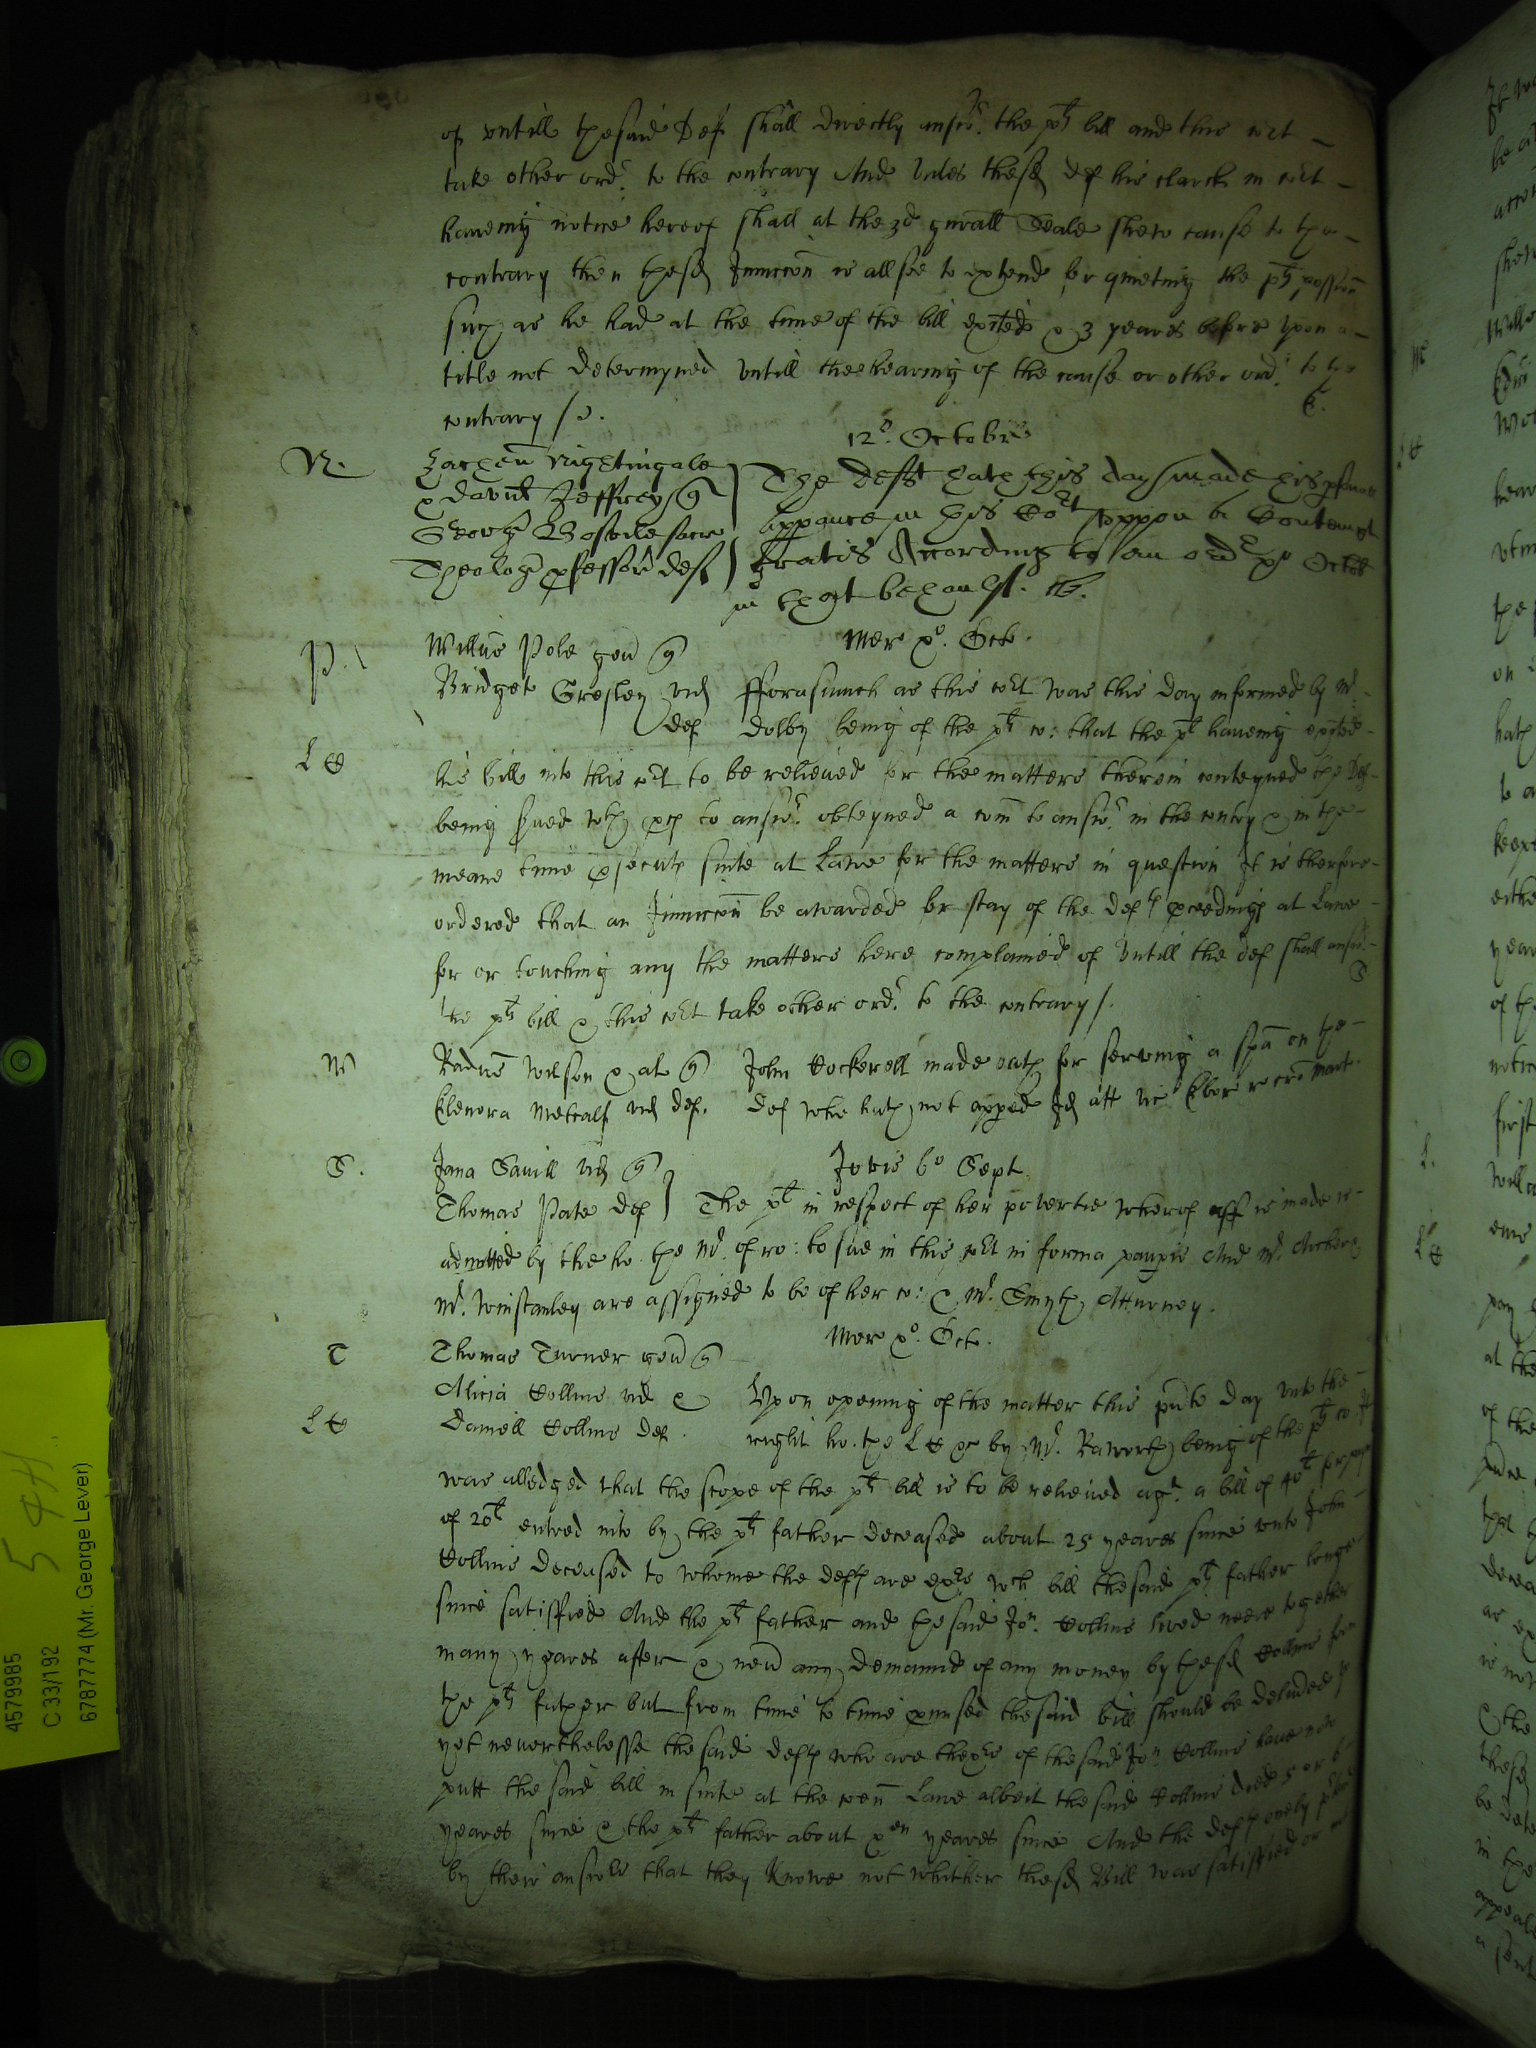 of untill the said Def shall directly answ.r the pl.ts bill and this co.rt
take other ord.r to the contrary And unles the sd def his clarck in co.rt
haveing notice hereof shall at the 3d gnrall Seale shew cause to the
contrary then the sd Iniunccon is allsoe to extend for quieting the pl.ts possion
such as he had at the time of the bill exited & 3 yeares before upon a
title not determyned untill the heareing of the cause or other ord.r to the
contrary /
12.o Octobris
N. Zacheus Nightingale
& David Jeffrey q
George Bostocke sacre
Theolog pfessor def
The deft hath this day made his psonall
appance in this Co.rt uppon a Contempt
gratis According to an ord.r xo Octob
P. Willus Pole gen q
Mer xo. Octo.
Bridget Gresley vid def
L C
fforasmuch as this co.rt was this day informed by M.r
Dolby being of the pl.ts co: that the pl.t haveing exited
his bill into this co.rt to be releived for the matters therein conteyned the Def
being sued wth pces to answ.r obteyned a com to answ.r in the contry & in the
meane time psecuth suite at Lawe for the matters in question It is therfore
ordered that an Iniunccon be awarded for stay of the def.ts pceedings at Lawe
for or touching any the matters here complained of untill the def shall answ.r
the pl.ts bill & this co.rt take other ord.r to the contrary /.
W Radus Wilson & al q
Elenora Metcalf vid def.
John Cockerell made oath for serving a spa on the
def who hath not apped Id att vic Ebor
S. Jana Savill vid q
Thomas Pate def
Jovis 6o Sept.
The pl.t in respect of her povertie wherof aff is made is
admitted by the ho. the M.r of ro: to sue in this co.rt in forma paupis And M.r
M.r Winstanley are assigned to be of her co: & M.r Smyth Atturney.
Mer xo. Octo.
T Thomas Turner gen q
Alicia Collins vid &
Daniell Collins def.
L C
Upon opening of the matter this pnte day unto the
right ho. the L C &c by M.r Raworth being of the pl.ts co. It
was alledged that the scope of the pl.ts bill is to be releived ag.t a bill of 40.l for paym.t
of 20.l entred into by the pl.ts father deceased about 25 yeares since unto John
Collins deceased to whome the def.ts are ex.rs wch bill the said pl.ts father longe
since satisffied And the pl.ts father and the said Jo.n Collins lived neere together
many yeares after & nevr any demannd of any money by the sd Collins from
the pl.ts father but from time to time pmised the said bill should be delivered up
yet neverthelesse the said def.ts who are the ex.rs of the said Jo.n Collins have now
putt the said bill in suite at the coen Lawe albeit the said Collins died 5 or 6
yeares since & the pl.ts father about x.en yeares since And the def.ts onely
by their answ.rs that they knowe not whither the sd Bill was satisfied or not
4579985
C 33/192
6787774 (Mr. George Lever)